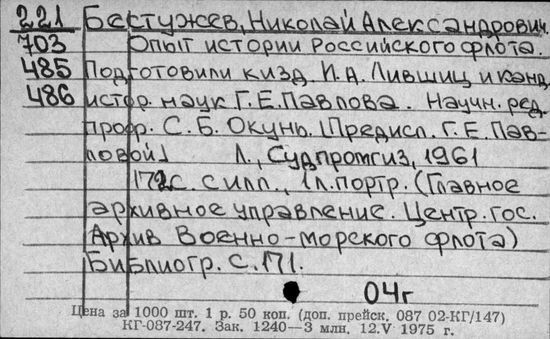 221 Бестужев, Николай Александрович.
703 Опыт истории Российского флота.
485 Подготовили к изд. И.А. Лившиц и канд.
486 истор. наук Г.Е.Павлова. Научн. ред.
проф. С.Б. Окунь. [Предисл. Г.Е. Пав-
ловой] Л., Судпромгиз, 1961
172с. с илл., 1л.портр. (Главное
архивное управление. Центр. гос.
Архив Военно-морского флота)
Библиогр. с.171.
04г
Цена за 1000 шт. 1 р. 50 коп. (доп. прейск. 087 02-КГ/147)
КГ-087-247. Зак. 1240—3 млн. 12.V 1975 г.